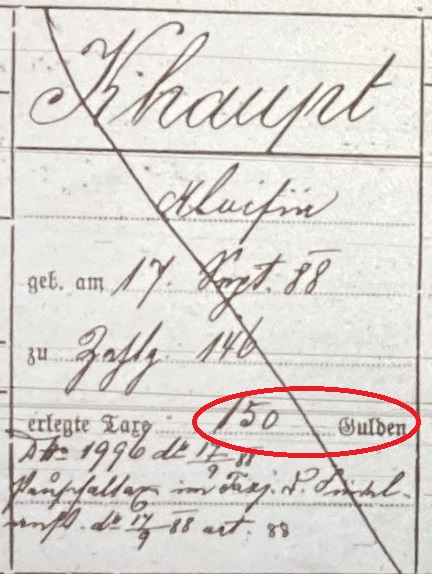 Khaupt
Aloisia
geb. am 17. Sept. 88
zu Zahlg. 146
erlegte Taxe 150 Gulden
No 1996 dto 17/9 88
im
dto 17/9 88 art. 88